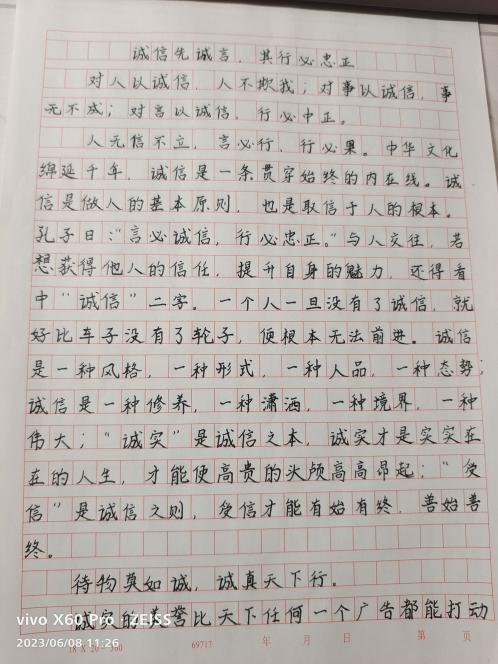 诚信先诚言，其行必忠正
对人以诚信，人不欺我；对事以诚信，事
无不成；对言以诚信，行必中正。
人无信不立，言必行，行必果。中华文化
绵延千年，诚信是一条贯穿始终的内在线。诚
信是做人的基本原则，也是取信于人的根本。
孔子曰："言必诚信，行必忠正。"与人交往，若
想获得他人的信任，提升自身的魅力，还得看
中"诚信"二字。一个人一旦没有了诚信，就
好比车子没有了轮子，便根本无法前进。诚信
是一种风格，一种形式，一种人品，一种态势；
诚信是一种修养，一种潇洒，一种境界，一种
伟大；"诚实"是诚信之本，诚实才是实实在
在的人生，才能使高贵的头颅高高昂起；"受
信"是诚信之则，受信才能有始有终，善始善
终。
待物莫如诚，诚真天下行。
诚实的美誉比天下任何一个广告都能打动
vivo X60 Pro | ZEISS
2023/06/08 11:26
18 X 20 = 360
69717
年 月 日
第 页